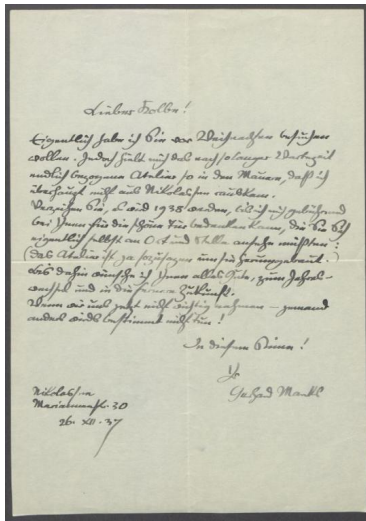 Lieber Kolbe!
Eigentlich habe ich Sie vor Weihnachten besuchen
wollen. Jedoch hielt mich das nach so langer Wartezeit
endlich bezogene Atelier so in den Mauern, daß ich
überhaupt nicht aus Nikolassee rauskam.
Verzeihen Sie, es wird 1938 werden, bis ich mich gebührend
bei Ihnen für die schöne Tür bedanken kann, die Sie sich
eigentlich selbst an Ort und Stelle ansehn müßten:
(das Atelier ist ja sozusagen um sie herumgebaut.)
Bis dahin wünsche ich Ihnen alles Gute, zum Jahres-
wechsel und in die fernere Zukunft.
Wenn wir uns jetzt nicht wichtig nehmen – jemand
anders wirds bestimmt nicht tun!
In diesem Sinne!
Ihr
Gerhard Marcks
Nikolassee
Prinz 30
26. XII. 37